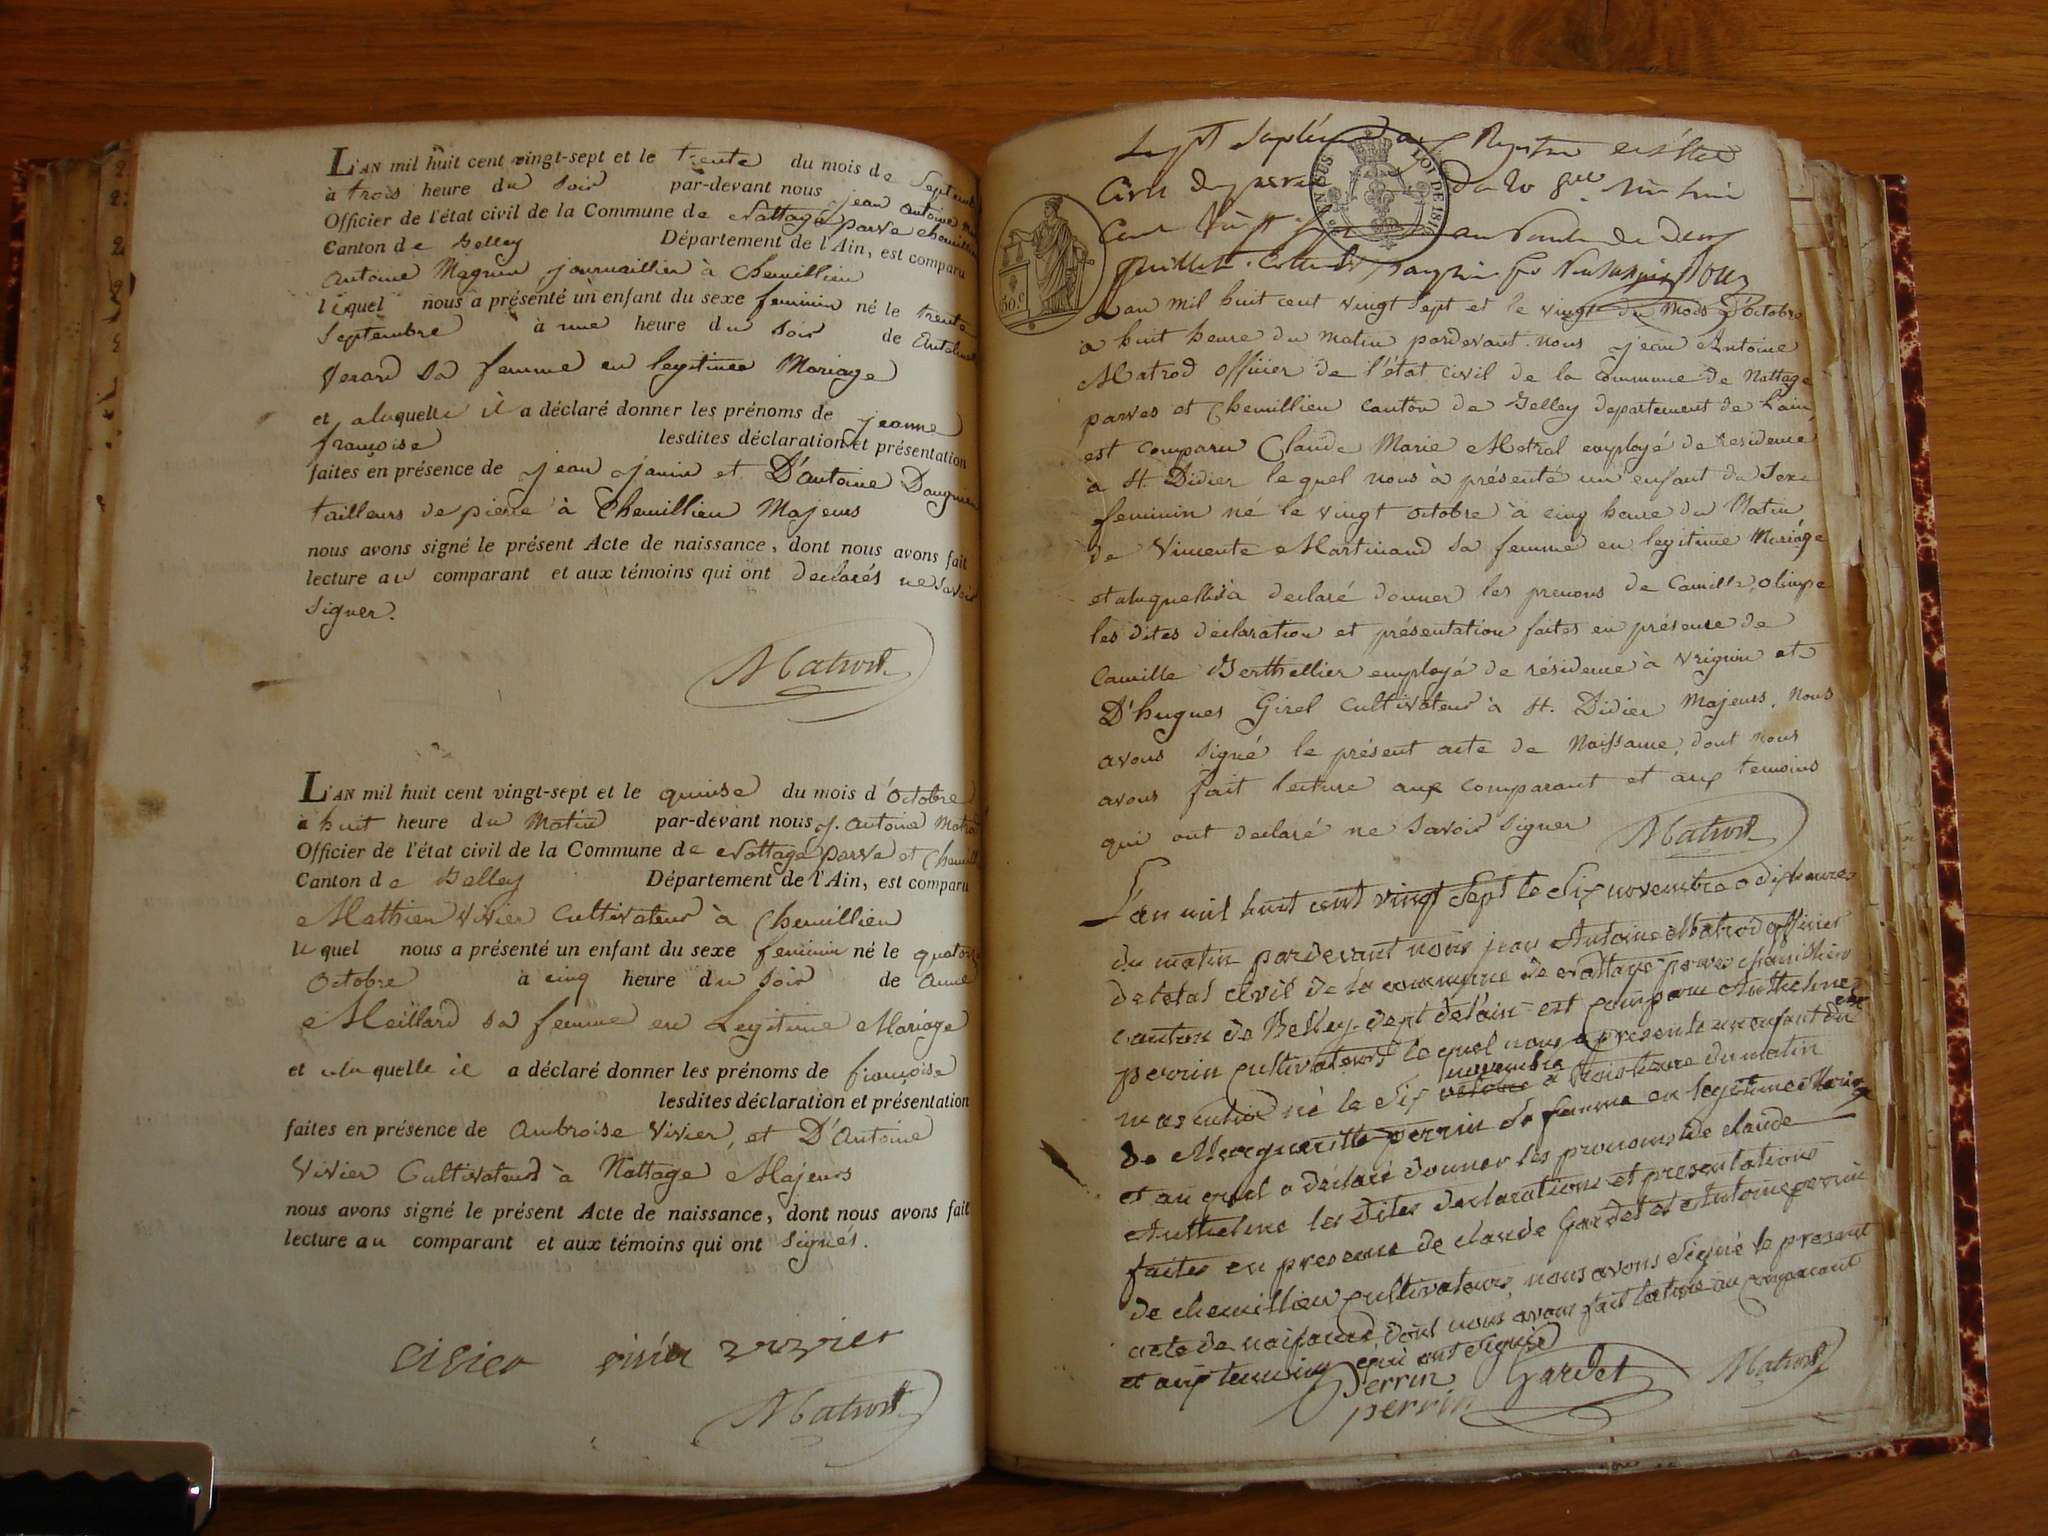 L'AN mil huit cent vingt-sept et le trente du mois de Septembre
à trois heure du Soir par-devant nous jean antoine
Officier de l'état civil de la Commune de Nattage parve chemillieu
Canton de Belley Département de l'Ain, est comparu
antoine Magnin journaillier à Chemillieu
lequel nous a présenté un enfant du sexe feminin né le trente
Septembre à une heure du Soir de Antoinette
Verard Sa femme en legitime Mariage
et alaquelle il a déclaré donner les prénoms de jeanne
françoise lesdites déclaration et présentation
faites en présence de jean janin et D'antoine Dauguin
tailleurs de pierre à Chemillieu Majeurs
nous avons signé le présent Acte de naissance, dont nous avons fait
lecture au comparant et aux témoins qui ont declarés ne Savoir
Signer.
Matrod
L'AN mil huit cent vingt-sept et le quinse du mois d'Octobre
à huit heure du Matin par-devant nous j. antoine Matrod
Officier de l'état civil de la Commune de Nattage parve et Chemill
Canton de Belley Département de l'Ain, est comparu
Mathieu Vivier Cultivateur à Chemillieu
lequel nous a présenté un enfant du sexe feminin né le quatorze
Octobre à cinq heure du Soir de Anne
Meillard Sa femme en Legitime Mariage
et alaquelle il a déclaré donner les prénoms de françoise
lesdites déclaration et présentation
faites en présence de Ambroise Vivier, et D'Antoine
Vivier Cultivateurs à Nattage Majeurs
nous avons signé le présent Acte de naissance, dont nous avons fait
lecture au comparant et aux témoins qui ont Signés.
vivier vivier vivier
Matrod
Registre
Civil de
Cent Vingt
TIMBRE
EN SUS
LOI DE 181
50 C
L'an mil huit cent vingt Sept et le vingt du Mois D'Octobre
à huit heure du Matin pardevant nous jean Antoine
Matrod officier de l'état civil de la commune de Nattage
parves et Chemillieu canton de Belley departement de l'ain
est comparu Claude Marie Metral employé de residence
à St. Didier le quel nous à présenté un enfant du Sexe
feminin né le vingt octobre à cinq heure du Matin
de Vincente Martinand Sa femme en legitime Mariage
et alaquelle il a declaré donner les prenoms de Camille, olimpe
les dites déclaration et présentation faites en présence de
Camille Berthellier employé de résidence à Vrignin et
D'hugues Girel Cultivateur à St. Didier Majeurs. Nous
avons Signé le présent acte de Naissance, dont nous
avons fait lecture aux comparant et aux temoins
qui ont declaré ne Savoir Signer Matrod
L'an mil huit cent vingt Sept le Six novembre a dix heures
du matin pardevant nous jean Antoine Matrod officier
de letat civil de la commune de Nattage parves chemillieu
canton de Belley dept delain est comparu Anthelme
perrin cultivateur le quel nous a presenté un enfant du sexe
masculin né le Six octobre novembre a trois heure du matin
de Marguerite perrin Sa femme en legitime Mariage
et au quel a déclaré donner les prenoms de claude
Anthelme les dites declarations et presentations
faites en presence de claude Gardet et Antoine perrin
de chemillieu cultivateurs, nous avons Signé le present
acte de naissance dont nous avons fait lecture au comparant
et aux temoins qui ont Signé
Perrin Gardet Matrod
perrin